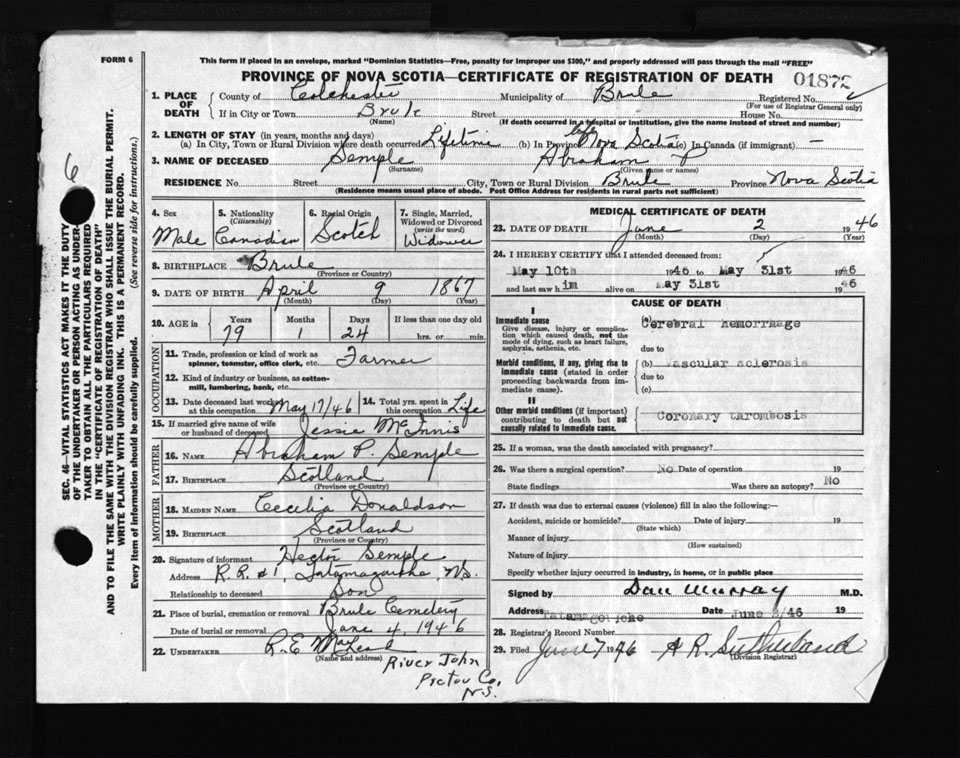 FORM 6
This form if placed in an envelope, marked "Dominion Statistics—Free, penalty for improper use $300," and properly addressed will pass through the mail "FREE"
PROVINCE OF NOVA SCOTIA—CERTIFICATE OF REGISTRATION OF DEATH 01872
1. PLACE OF DEATH County of Colchester Municipality of Brule Registered No.
(For use of Registrar General only)
If in City or Town Brule Street House No.
(Name) (If death occurred in a hospital or institution, give the name instead of street and number)
2. LENGTH OF STAY (in years, months and days)
(a) In City, Town or Rural Division where death occurred Lifetime (b) In Province Nova Scotia (c) In Canada (if immigrant) —
3. NAME OF DECEASED Semple Abraham P
(Surname) (Given name or names)
RESIDENCE No Street City, Town or Rural Division Brule Province Nova Scotia
(Residence means usual place of abode. Post Office Address for residents in rural parts not sufficient)
4. Sex Male
5. Nationality (Citizenship) Canadian
6. Racial Origin Scotch
7. Single, Married, Widowed or Divorced (write the word) Widower
8. BIRTHPLACE Brule
(Province or Country)
9. DATE OF BIRTH April 9 1867
(Month) (Day) (Year)
10. AGE in Years Months Days If less than one day old
79 1 24 hrs. or min.
OCCUPATION
11. Trade, profession or kind of work as spinner, teamster, office clerk, etc. Farmer
12. Kind of industry or business, as cotton-mill, lumbering, bank, etc.
13. Date deceased last worked at this occupation May 17/46 14. Total yrs. spent in this occupation Life
15. If married give name of wife or husband of deceased Jessie McInnis
FATHER
16. NAME Abraham P. Semple
17. BIRTHPLACE Scotland
(Province or Country)
MOTHER
18. MAIDEN NAME Cecilia Donaldson
19. BIRTHPLACE Scotland
(Province or Country)
20. Signature of informant Hector Semple
Address R.R. #1, Tatamagouche, N.S.
Relationship to deceased Son
21. Place of burial, cremation or removal Brule Cemetery
Date of burial or removal June 4, 1946
22. UNDERTAKER R.E.
(Name and address) River John
Pictou Co.
N.S.
MEDICAL CERTIFICATE OF DEATH
23. DATE OF DEATH June 2 1946
(Month) (Day) (Year)
24. I HEREBY CERTIFY that I attended deceased from:
May 10th 1946 to May 31st 1946
and last saw him alive on May 31st 1946
CAUSE OF DEATH
I
Immediate cause (a) Cerebral hemorrhage
Give disease, injury or complication which caused death, not the mode of dying, such as heart failure, asphyxia, asthenia, etc.
due to
Morbid conditions, if any, giving rise to immediate cause (stated in order proceeding backwards from immediate cause).
(b) Vascular sclerosis
due to
(c)
II
Other morbid conditions (if important) contributing to death but not causally related to immediate cause.
Coronary thrombosis
25. If a woman, was the death associated with pregnancy?
26. Was there a surgical operation? No Date of operation 19
State findings Was there an autopsy? No
27. If death was due to external causes (violence) fill in also the following:—
Accident, suicide or homicide? Date of injury 19
(State which)
Manner of injury
(How sustained)
Nature of injury
Specify whether injury occurred in industry, in home, or in public place
Signed by Dan Murray M.D.
Address Tatamagouche Date June /46 19
28. Registrar's Record Number
29. Filed June 7 1946 A R. Sutherland
(Division Registrar)
6
SEC. 46—VITAL STATISTICS ACT MAKES IT THE DUTY
OF THE UNDERTAKER OR PERSON ACTING AS UNDER-
TAKER TO OBTAIN ALL THE PARTICULARS REQUIRED
IN THE "CERTIFICATE OF REGISTRATION OF DEATH"
AND TO FILE THE SAME WITH THE DIVISION REGISTRAR WHO SHALL ISSUE THE BURIAL PERMIT.
WRITE PLAINLY WITH UNFADING INK. THIS IS A PERMANENT RECORD.
Every item of information should be carefully supplied. (See reverse side for instructions.)